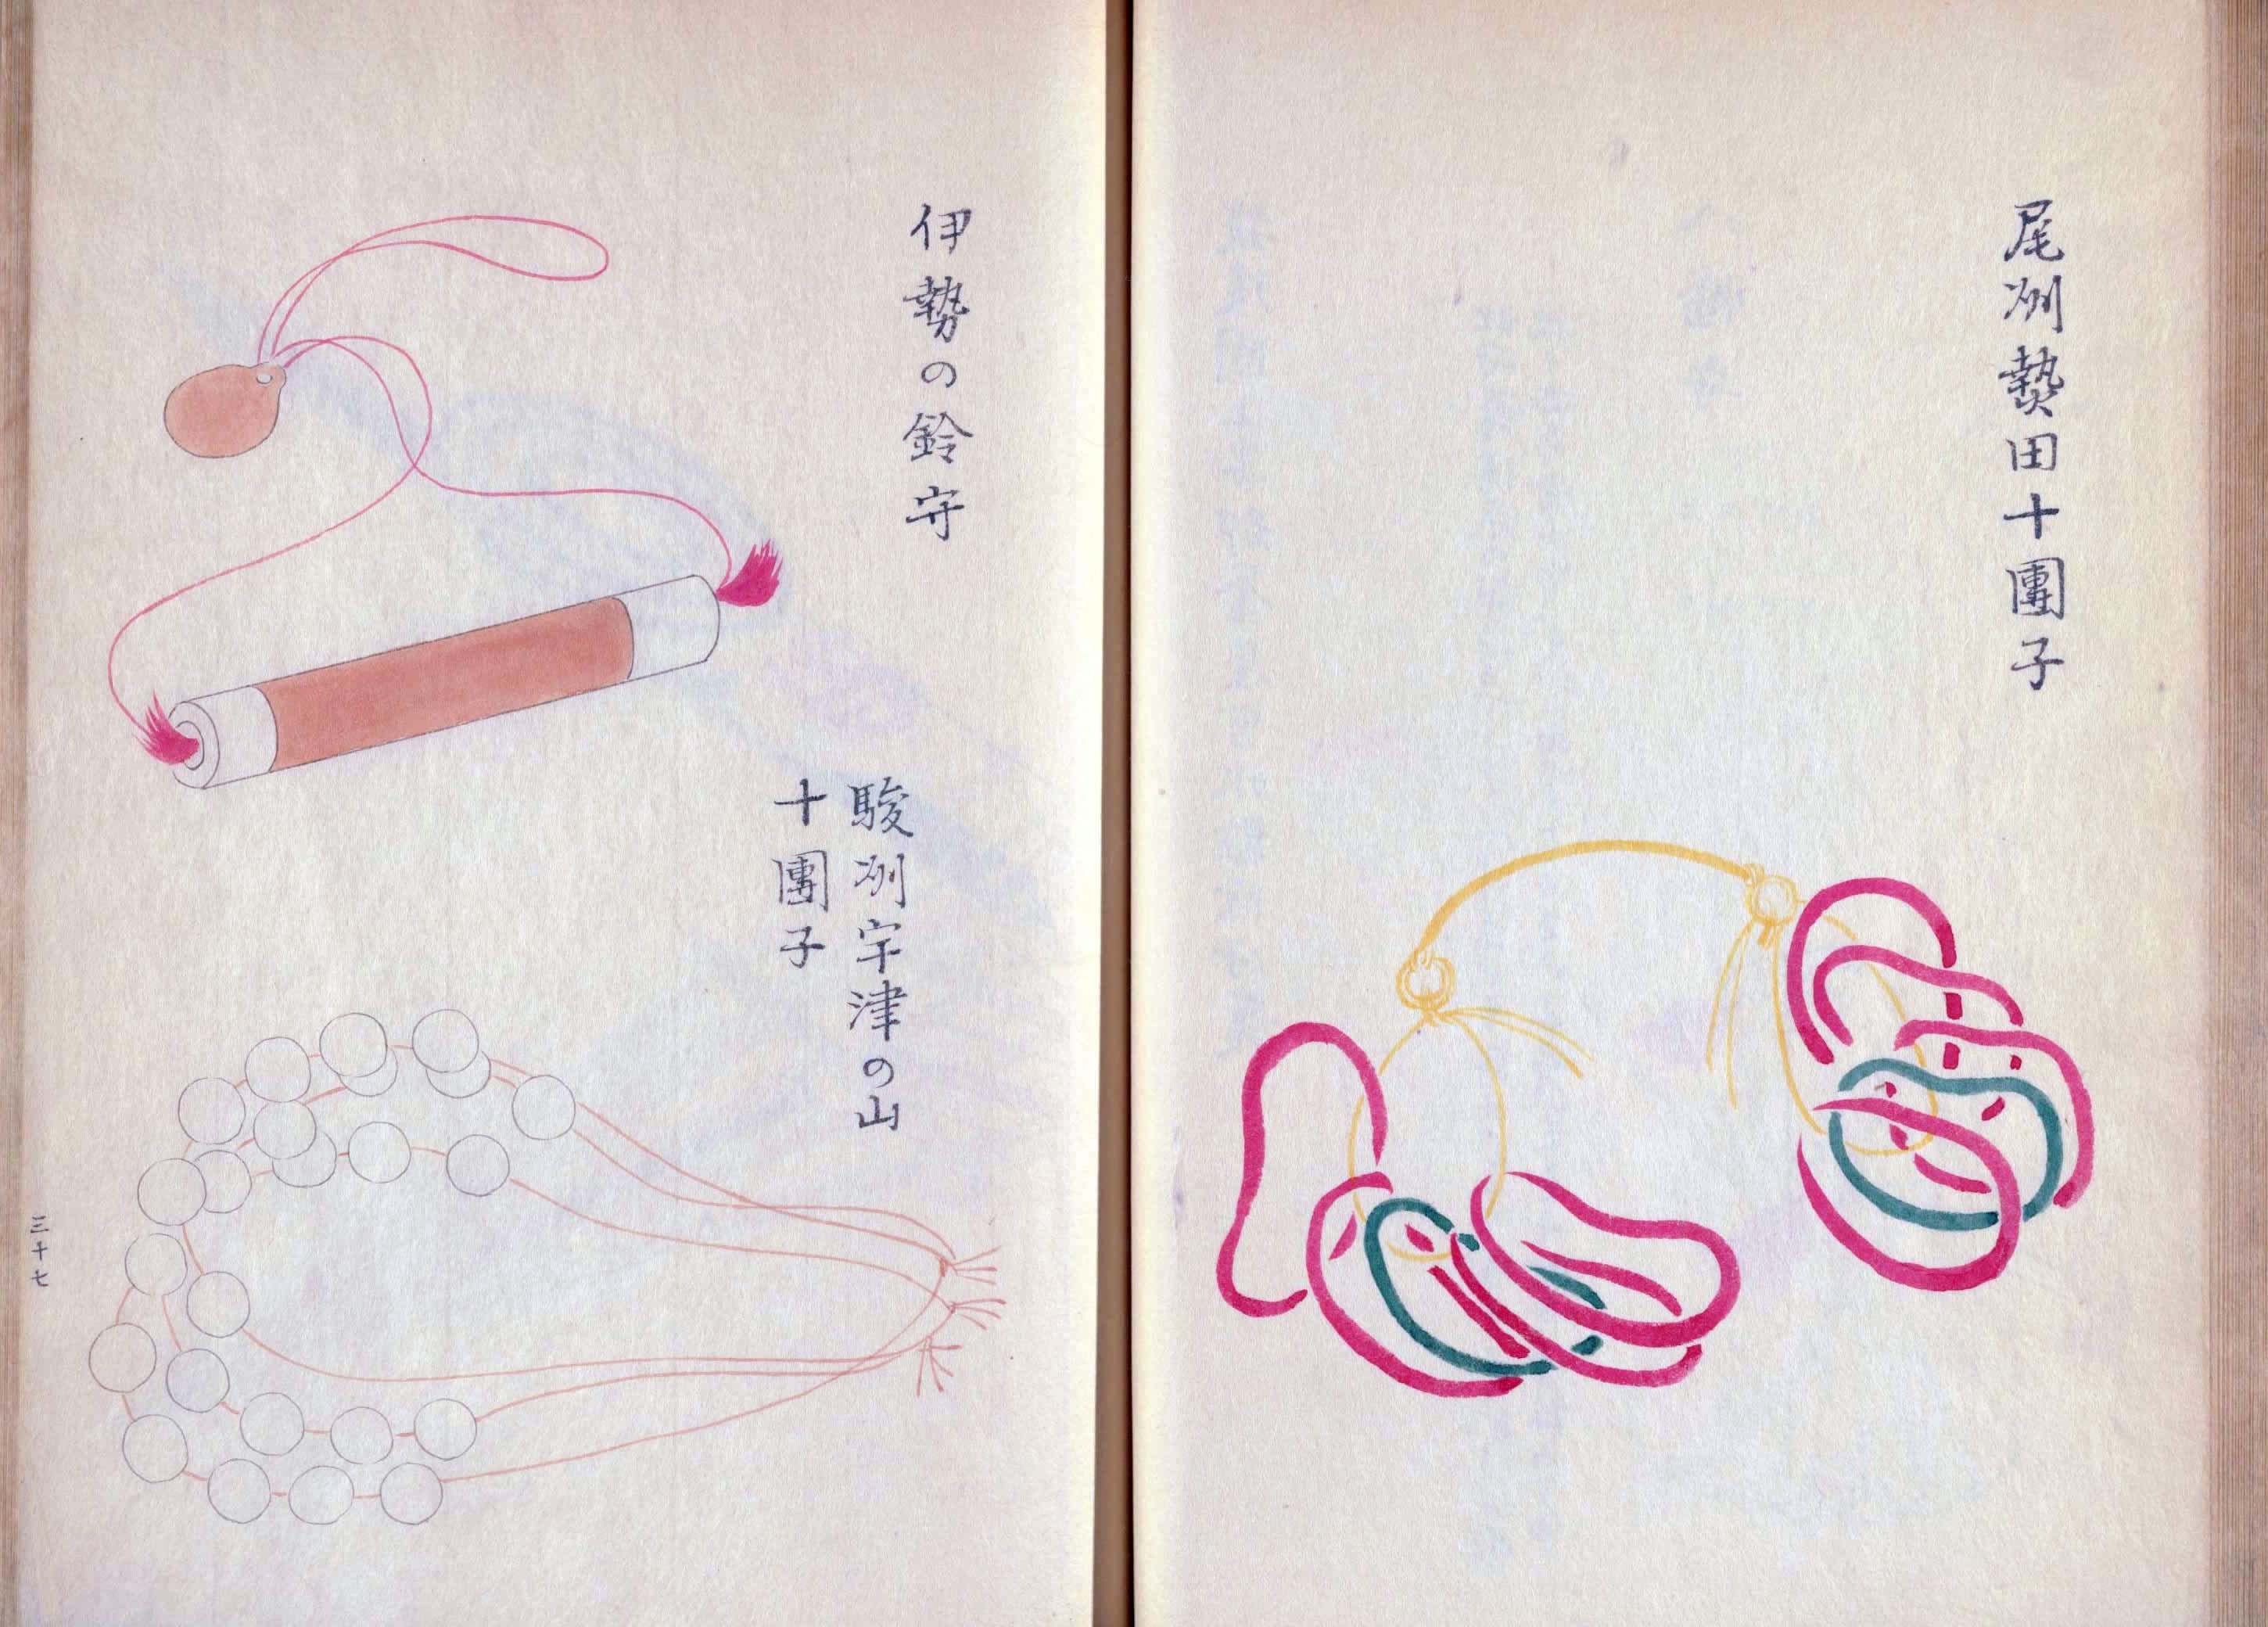 尾州熱田十團子
伊勢の鈴守
駿州宇津の山
十團子
三十七